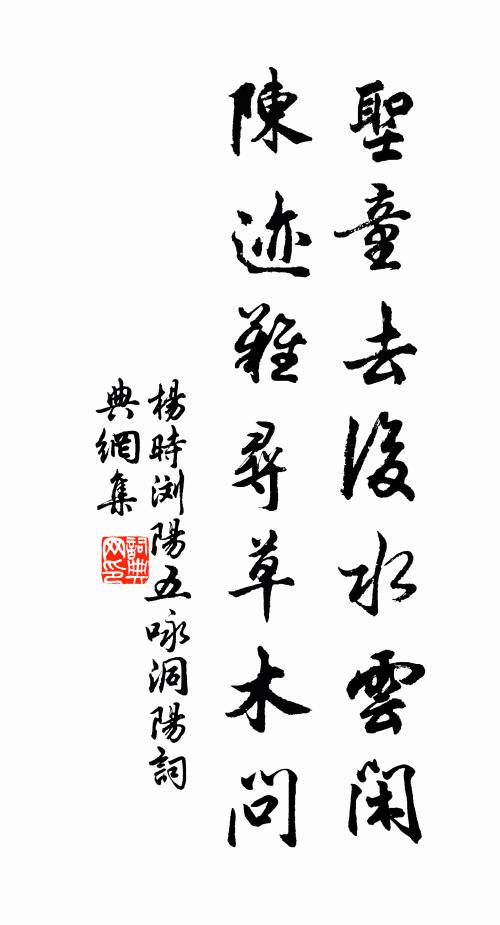 聖童去後水雲閑
陳迹難尋草木問
楊時浏陽五咏洞陽詞
典網集
詞典网印